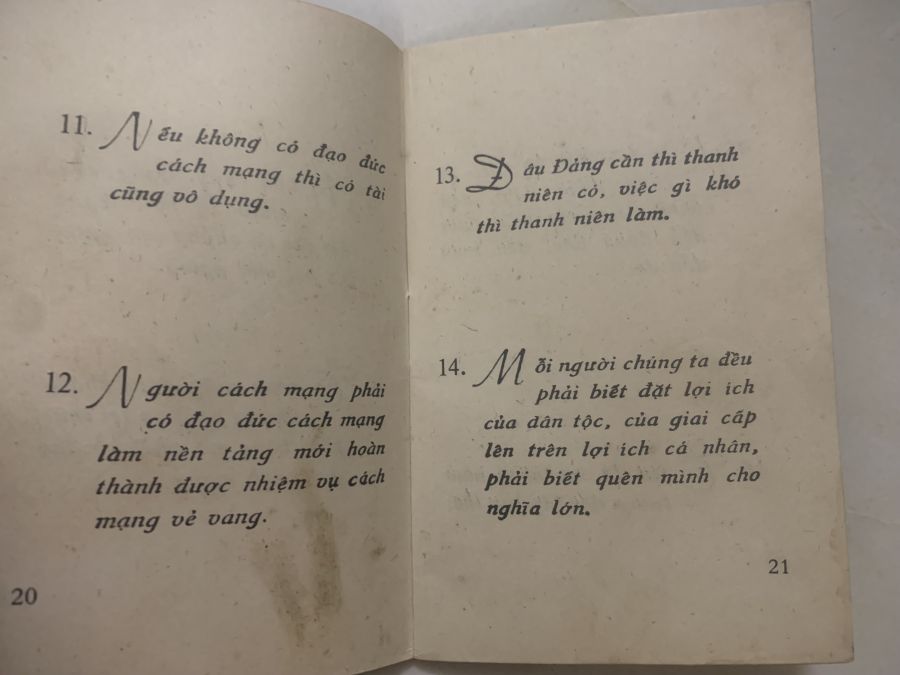 11. Nếu không có đạo đức
cách mạng thì có tài
cũng vô dụng.
12. Người cách mạng phải
có đạo đức cách mạng
làm nền tảng mới hoàn
thành được nhiệm vụ cách
mạng vẻ vang.
20
13. Đâu Đảng cần thì thanh
niên có, việc gì khó
thì thanh niên làm.
14. Mỗi người chúng ta đều
phải biết đặt lợi ích
của dân tộc, của giai cấp
lên trên lợi ích cá nhân,
phải biết quên mình cho
nghĩa lớn.
21